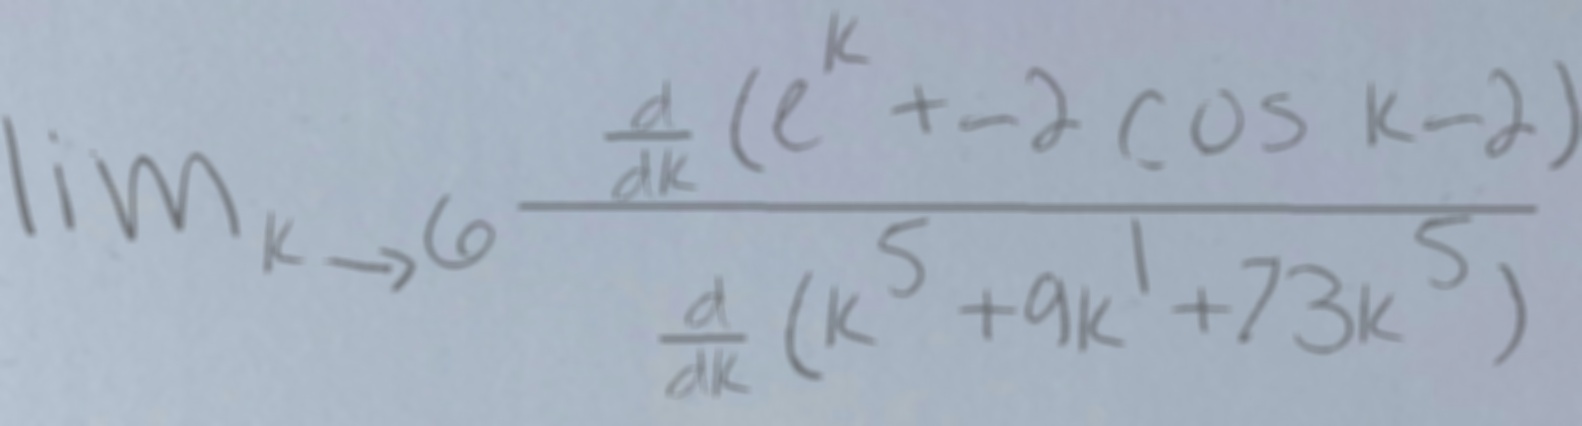 lim_{k→6} \frac{\frac{d}{dk}(e^k + -2 cos k - 2)}{\frac{d}{dk}(k^5 + 9k^1 + 73k^5)}